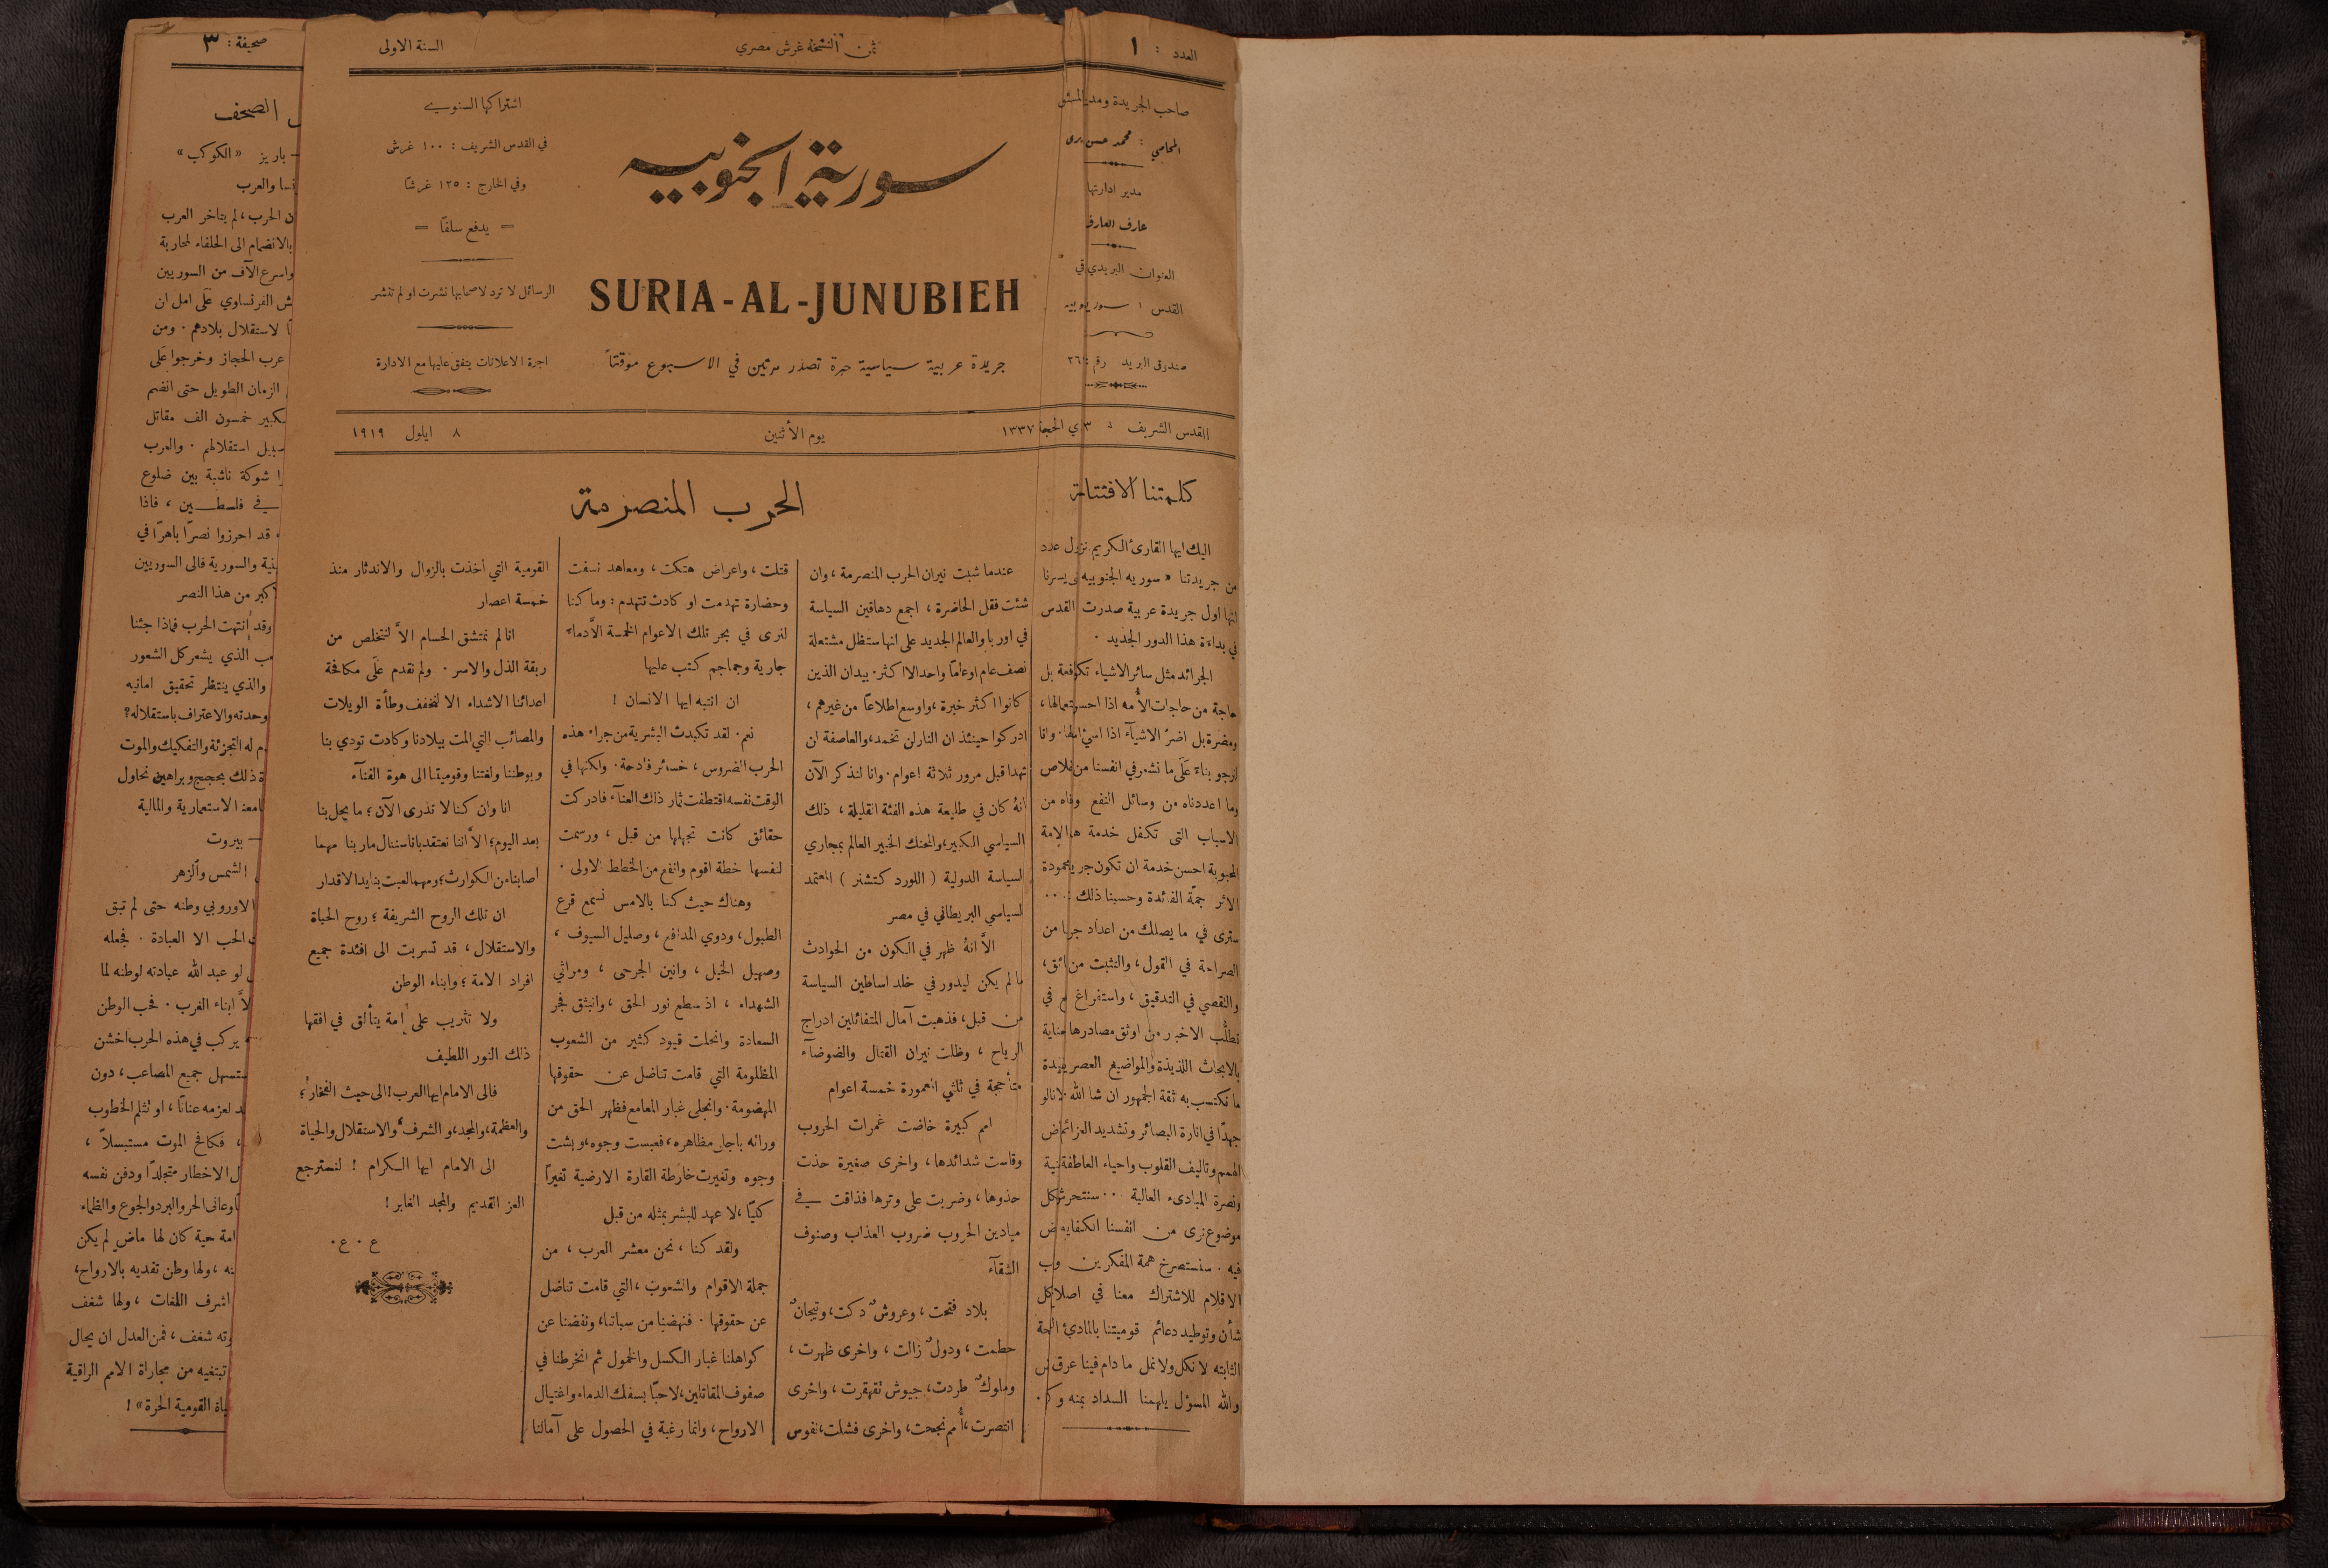 العدد : ١
ثمن النسخة غرش مصري
السنة الاولى
صاحب الجريدة
المحامي : محمد حسن
مدير ادارتها
عارف العارف
العنوان البريدي في
القدس
صندوق البريد رقم
سورية الجنوبيه
SURIA-AL-JUNUBIEH
جريدة عربية سياسية حرة تصدر مرتين في الاسبوع موقتاً
اشتراكها السنوي
في القدس الشريف : ١٠٠ غرش
وفي الخارج : ١٢٥ غرشاً
= يدفع سلفاً =
الرسائل لا ترد لاصحابها نشرت او لم تنشر
اجرة الاعلانات يتفق عليها مع الادارة
القدس الشريف
ي الحجة ١٣٣٧
يوم الأثنين
٨ ايلول ١٩١٩
كلمتنا
اليك ايها القارئ الكريم عدد
من جريدتنا « سوريه الجنوبيه
اول جريدة عربية صدرت القدس
في بداءة هذا الدور الجديد .
الجرائد مثل سائر الاشياء
حاجة من حاجات الأمه اذا
ومضرة بل اضرّ الاشيآء اذا اسيء
بناء عَلَى ما نشعر في انفسنا من
وما اعددناه من وسائل النفع من
الاسباب التى تكفل خدمة
المحبوبة احسن خدمة ان تكون
الاثر جمّة الفائدة وحسبنا ذلك
سترى في ما يصلك من اعداد من
الصراحة في القول، والتثبت من
والتقصي في التدقيق ، واستفراغ في
تطلُّب الاخبار من اوثق مصادرها
بالابحاث اللذيذة والمواضيع
ما نكتسب به ثقة الجمهور ان شا الله
جهدًا في انارة البصائر وتشديد
الهمم وتاليف القلوب واحياء
ونصرة المبادىء العالية
موضوع نرى من انفسنا
فيه . سنستصرخ همة المفكرين
الاقلام للاشتراك معنا في
شأن وتوطيد دعائم قوميتنا
الثابته لا نكل ولا نمل ما دام فينا عرق
والله المسؤل يلهمنا السداد بمنه
الحرب المنصرمة
عندما شبت نيران الحرب المنصرمة ، وان
شئت فقل الحاضرة ، اجمع دهاقين السياسة
في اوربا والعالم الجديد على انها ستظل مشتعلة
نصف عام او عامًا واحدا لا اكثر . بيد ان الذين
كانوا اكثر خبرة ، واوسع اطلاعًا من غيرهم ،
ادركوا حينئذ ان النار لن تخمد ، والعاصفة لن
تهدا قبل مرور ثلاثة اعوام . وانا لنذكر الآن
انهُ كان في طليعة هذه الفئة القليلة ، ذلك
السياسي الكبير ، والمحنك الخبير العالم بمجاري
السياسة الدولية ( اللورد كتشنر ) المعتمد
السياسي البريطاني في مصر
الاَّ انهُ ظهر في الكون من الحوادث
ما لم يكن ليدور في خلد اساطين السياسة
من قبل ، فذهبت آمال المتفائلين ادراج
الرياح ، وظلت نيران القتال والضوضآء
متأججة في ثلثي المعمورة خمسة اعوام
امم كبيرة خاضت غمرات الحروب
وقاست شدائدها ، واخرى صغيرة حذت
حذوها ، وضربت على وترها فذاقت في
ميادين الحروب ضروب العذاب وصنوف
الشقآء
بلاد فتحت ، وعروشٌ دكت ، وتيجانٌ
حطمت ، ودولٌ زالت ، واخرى ظهرت ،
وملوكٌ طردت ، جيوش تقهقرت ، واخرى
انتصرت ، أُمم نجحت ، واخرى فشلت ، نفوس
قتلت ، واعراض هتكت ، ومعاهد نسفت
وحضارة تهدمت او كادت تتهدم ؛ وما كنا
لنرى في بحر تلك الاعوام الخمسة الاَّ دماء
جارية وجماجم كتب عليها
ان انتبه ايها الانسان !
نعم . لقد تكبدت البشرية من جراء هذه
الحرب الضروس ، خسائر فادحة . ولكنها في
الوقت نفسه اقتطفت ثمار ذاك العنآء فادركت
حقائق كانت تجهلها من قبل ، ورسمت
لنفسها خطة اقوم وانفع من الخطط الاولى .
وهناك حيث كنا بالامس نسمع قرع
الطبول ، ودوي المدافع ، وصليل السيوف ،
وصهيل الخيل ، وانين الجرحى ، ومراثي
الشهداء ، اذ سطع نور الحق ، وانبثق فجر
السعادة وانحلت قيود كثير من الشعوب
المظلومة التي قامت تناضل عن حقوقها
المهضومة . وانجلى غبار المعامع فظهر الحق من
ورائه باجلى مظاهره ، فعبست وجوه ، وبشت
وجوه وتغيرت خارطة القارة الارضية تغيراً
كليًا ، لا عهد للبشر بمثله من قبل
ولقد كنا ، نحن معشر العرب ، من
جملة الاقوام والشعوب ، التي قامت تناضل
عن حقوقها . فنهضنا من سباتنا ، ونفضنا عن
كواهلنا غبار الكسل والخمول ثم انخرطنا في
صفوف المقاتلين ، لا حبًا بسفك الدماء واغتيال
الارواح ، وانما رغبة في الحصول على آمالنا
القومية التي اخذت بالزوال والاندثار منذ
خمسة اعصار
انا لم نمتشق الحسام الاَّ لنتخلص من
ربقة الذل والاسر . ولم نقدم عَلَى مكافحة
اعدائنا الاشداء الا لنخفف وطأة الويلات
والمصائب التي المت ببلادنا وكادت تودي بنا
وبوطننا ولغتنا وقوميتنا الى هوة الفنآء
انا وان كنا لا ندري الآن ؛ ما يحل بنا
بعد اليوم ؛ الاَّ اننا نعتقد باننا سننال ماربنا مهما
اصابنا من الكوارث ؛ ومهما لعبت بنا يد الاقدار
ان تلك الروح الشريفة ؛ روح الحياة
والاستقلال ، قد تسربت الى افئدة جميع
افراد الامة ؛ وابناء الوطن
ولا تثريب على إمة يتألق في افقها
ذلك النور اللطيف
فالى الامام ايها العرب ! الى حيث الفخار ؛
والعظمة ، والمجد ، و الشرف ، والاستقلال والحياة
الى الامام ايها الكرام ! لنسترجع
العز القديم والمجد الغابر !
ع . ع .
صحيفة : ٣
الصحف
باريز « الكوكب »
والعرب
الحرب ، لم يتاخر العرب
بالانضمام الى الحلفاء لمحاربة
واسرع الآف من السوريين
الفرنساوي عَلَى امل ان
لاستقلال بلادهم . ومن
عرب الحجاز وخرجوا عَلَى
الزمان الطويل حتى انضم
خمسون الف مقاتل
استقلالهم . والعرب
شوكة ناشبة بين ضلوع
في فلسطين ، فاذا
قد احرزوا نصرًا باهرًا في
والسورية فالى السوريين
من هذا النصر
وقد انتهت الحرب فماذا جئنا
الذي يشعر كل الشعور
والذي ينتظر تحقيق امانيه
وحدته والاعتراف باستقلاله ؟
له التجزئة والتفكيك والموت
ذلك بحجج وبراهين نحاول
الاستعمارية والمالية
— بيروت
الشمس والزهر
الاوروبي وطنه حتى لم تبق
الحب الا العبادة . فجعله
لو عبد الله عبادته لوطنه لما
ابناء الغرب . فحب الوطن
يركب في هذه الحرب اخشن
جميع المصاعب ، دون
لعزمه عنانًا ، او تثلم الخطوب
، فكافح الموت مستبسلاً ،
الاخطار متجلدًا ودفن نفسه
وعانى الحر والبرد والجوع والظماء
امة حية كان لها ماضٍ لم يكن
، ولها وطن تفديه بالارواح ،
اشرف اللغات ، ولها شغف
شغف ، فمن العدل ان يحال
تبتغيه من مجاراة الامم الراقية
القومية الحرة » !